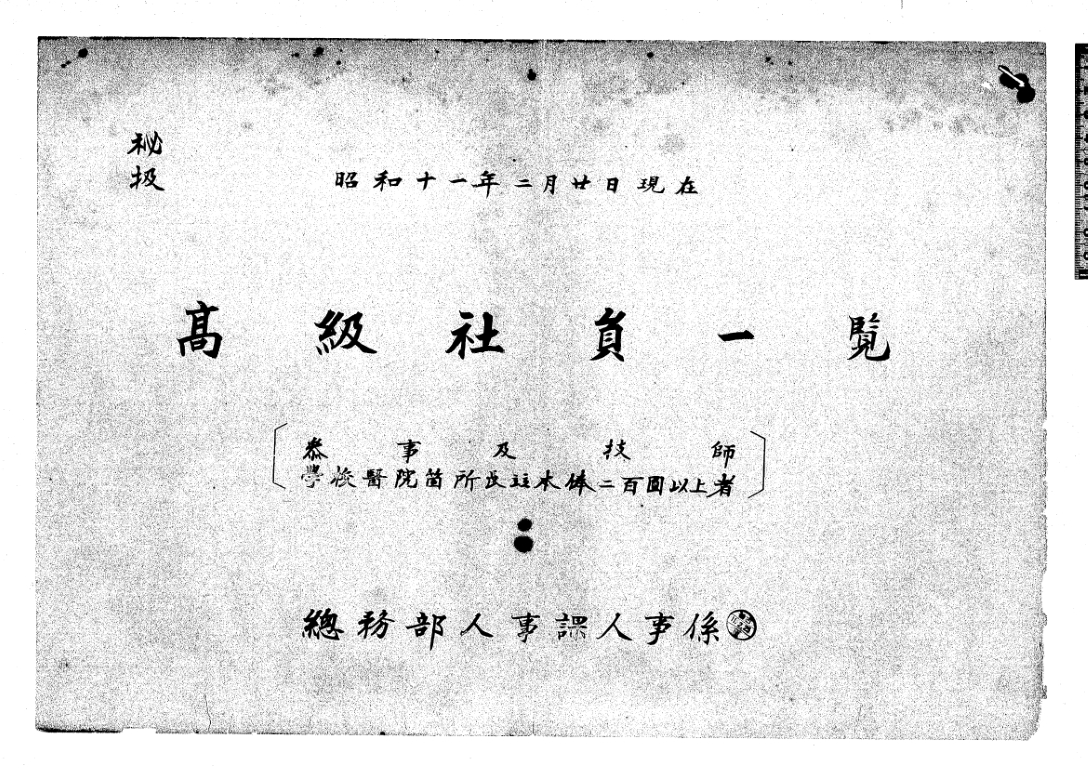 秘
扱
昭和十一年二月廿日現在
高級社員一覧
参事及技師
學校醫院箇所長並本俸二百圓以上者
總務部人事課人事係